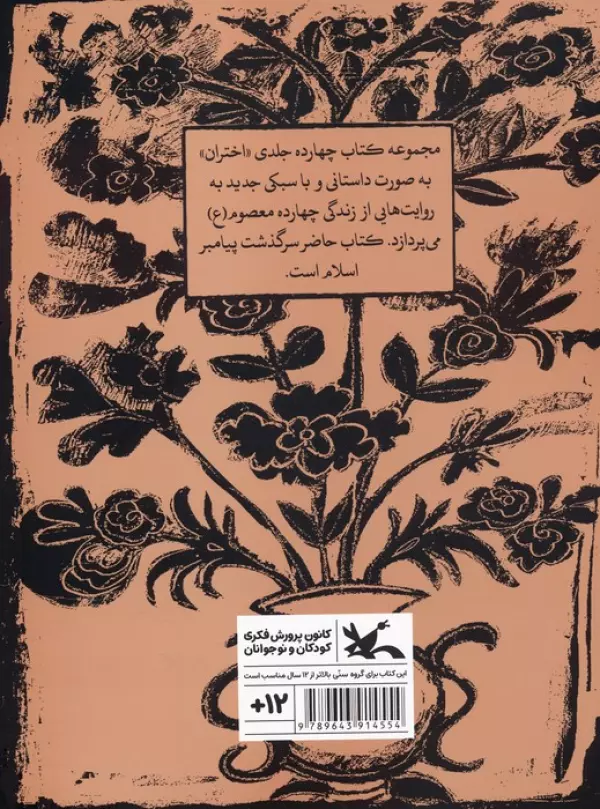 مجموعه کتاب چهارده جلدی «اختران»
به صورت داستانی و با سبکی جدید به
روایت‌هایی از زندگی چهارده معصوم(ع)
می‌پردازد. کتاب حاضر سرگذشت پیامبر
اسلام است.
کانون پرورش فکری
کودکان و نوجوانان
این کتاب برای گروه سنّی بالاتر از ۱۲ سال مناسب است
+۱۲
9 789643 914554